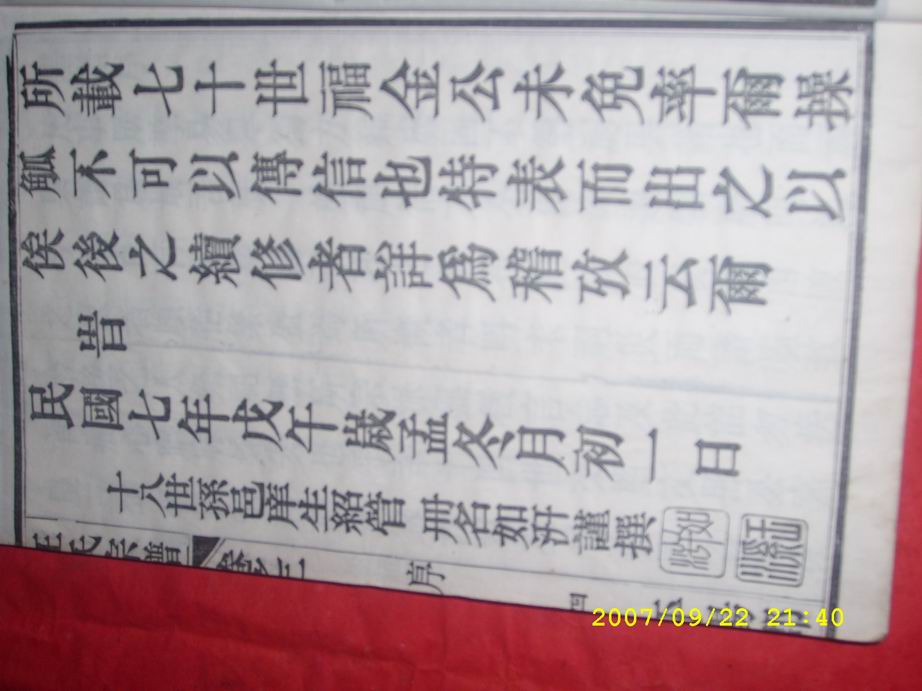 所載七十世福金公未免率爾操
觚不可以傳信也特表而出之以
俟後之續修者詳爲稽攷云爾
旹
民國七年戊午歲孟冬月初一日
十八世孫邑庠生紹管 冊名如汧謹撰
王氏宗譜
序
四
2007/09/22 21:40